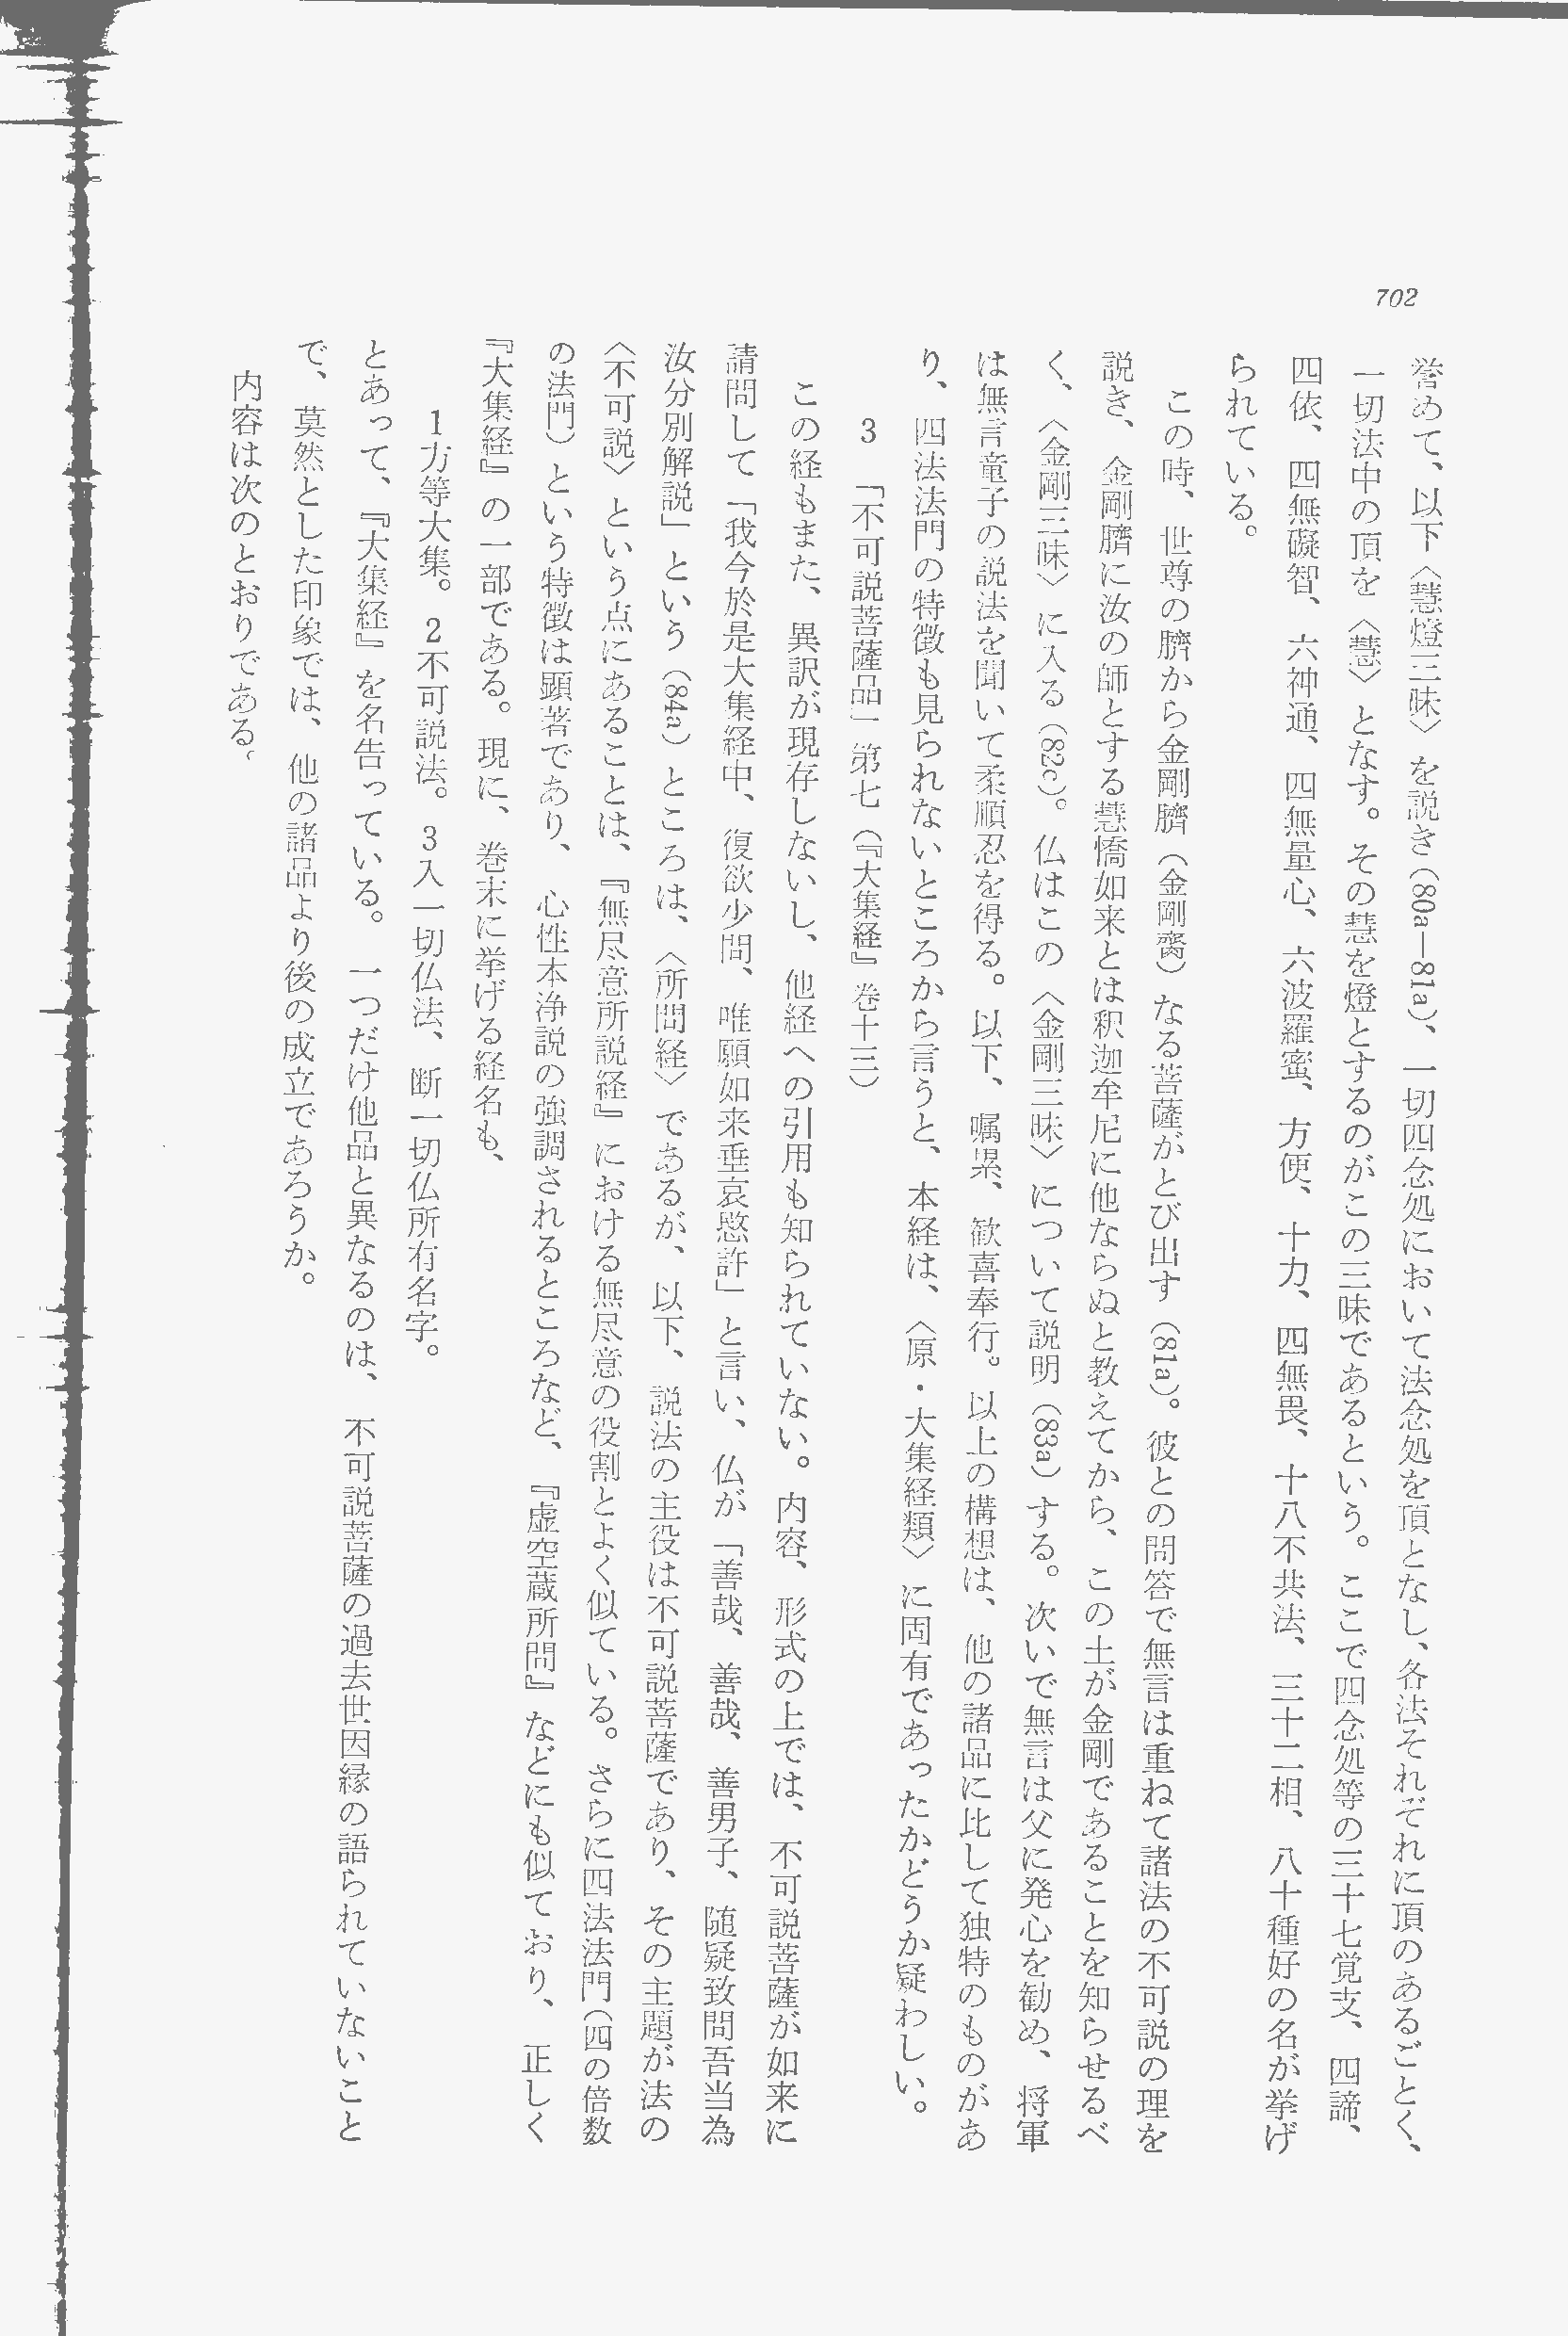 702
誉めて、以下〈慧燈三昧〉を説き(80a―81a)、一切四念処において法念処を頂となし、各法それぞれに頂のあるごとく、
一切法中の頂を〈慧〉となす。その慧を燈とするのがこの三昧であるという。ここで四念処等の三十七覚支、四諦、
四依、四無礙智、六神通、四無量心、六波羅蜜、方便、十力、四無畏、十八不共法、三十二相、八十種好の名が挙げ
られている。
この時、世尊の臍から金剛臍(金剛齎)なる菩薩がとび出す(81a)。彼との問答で無言は重ねて諸法の不可説の理を
説き、金剛臍に汝の師とする慧憍如来とは釈迦牟尼に他ならぬと教えてから、この土が金剛であることを知らせるべ
く、〈金剛三昧〉に入る(82c)。仏はこの〈金剛三昧〉について説明(83a)する。次いで無言は父に発心を勧め、将軍
は無言童子の説法を聞いて柔順忍を得る。以下、嘱累、歓喜奉行。以上の構想は、他の諸品に比して独特のものがあ
り、四法法門の特徴も見られないところから言うと、本経は、〈原・大集経類〉に固有であったかどうか疑わしい。
3 「不可説菩薩品」第七(『大集経』巻十三)
この経もまた、異訳が現存しないし、他経への引用も知られていない。内容、形式の上では、不可説菩薩が如来に
請問して「我今於是大集経中、復欲少問、唯願如来垂哀愍許」と言い、仏が「善哉、善哉、善男子、随疑致問吾当為
汝分別解説」という(84a)ところは、〈所問経〉であるが、以下、説法の主役は不可説菩薩であり、その主題が法の
〈不可説〉という点にあることは、『無尽意所説経』における無尽意の役割とよく似ている。さらに四法法門(四の倍数
の法門)という特徴は顕著であり、心性本浄説の強調されるところなど、『虚空蔵所問』などにも似ており、正しく
『大集経』の一部である。現に、巻末に挙げる経名も、
1方等大集。2不可説法。3入一切仏法、断一切仏所有名字。
とあって、『大集経』を名告っている。一つだけ他品と異なるのは、不可説菩薩の過去世因縁の語られていないこと
で、莫然とした印象では、他の諸品より後の成立であろうか。
内容は次のとおりである。